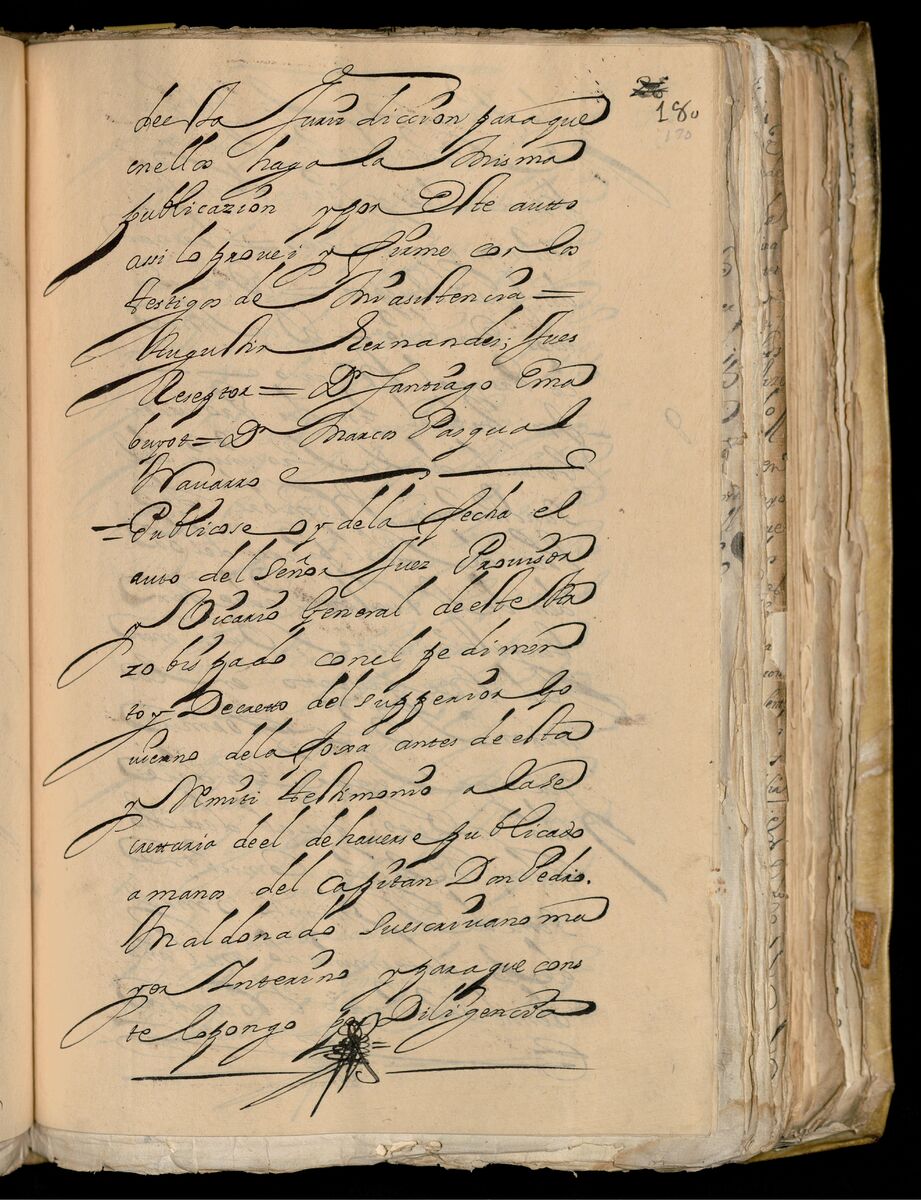 26
180
170
desta Jurisdiccion para que
enellos haga la misma
publicazion y por Este autto
assi lo provei y firme con los
testigos de mi asistencia =
Augustin Hernandes; Jues
Reseptor = Dn Santiago Ema
buyot = Dn Marcos Pasqual
Navarro
= Publicose oy dela fecha el
auto del Señor Juez Provisor
y Vicario General de este Ar
zobispado con el pedimen
to y Decretto del supperior Go
vierno dela foxa antes de esta
y Remiti testimonio a la Se
crettaria de el de haverse publicado
a manos del Capitan Don Pedro.
Maldonado su escrivano ma
yor Interino y para que cons
te lo pongo por Diligencia
=